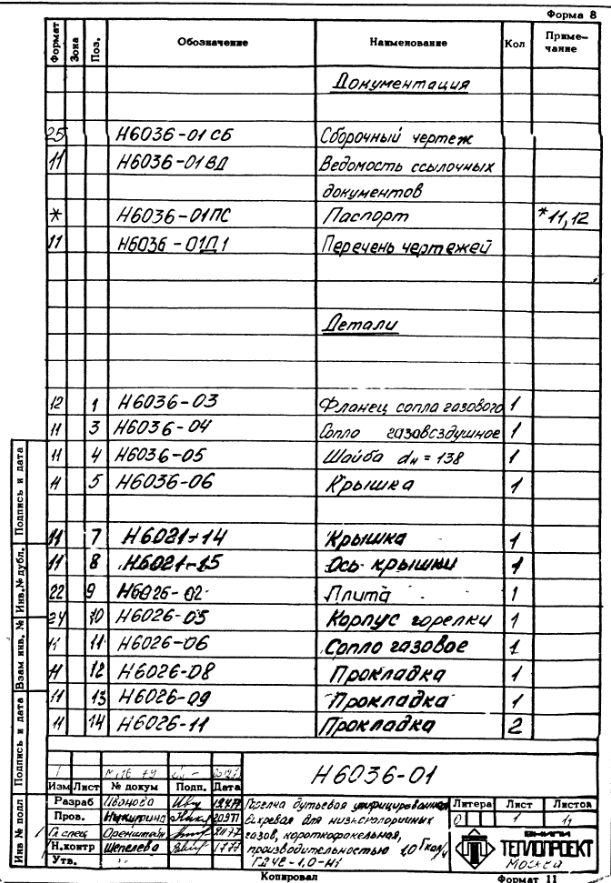 Форма 8
Формат Зона Поз. Обозначение Наименование Кол Приме-чание
Документация
25 Н6036-01 СБ Сборочный чертеж
11 Н6036-01ВД Ведомость ссылочных
документов
* Н6036-01ПС Паспорт *11,12
11 Н6036-01Д1 Перечень чертежей
Детали
12 1 Н6036-03 Фланец сопла газового 1
11 3 Н6036-04 Сопло газовоздушное 1
11 4 Н6036-05 Шайба dн = 138 1
11 5 Н6036-06 Крышка 1
11 7 Н6021-14 Крышка 1
11 8 Н6021-15 Ось крышки 1
22 9 Н6026-02 Плита 1
24 10 Н6026-05 Корпус горелки 1
11 11 Н6026-06 Сопло газовое 1
11 12 Н6026-08 Прокладка 1
11 13 Н6026-09 Прокладка 1
11 14 Н6026-11 Прокладка 2
Инв № подл Подпись и дата Взам инв. № Инв.№ дубл. Подпись и дата
Н6036-01
Изм Лист № докум Подп. Дата
Разраб Иванова
Пров. Никитина
Гл спец Оренштейн
Н.контр Шепелева
Утв.
Горелка дутьевая унифицированная
вихревая для низкокалорийных
газов, короткофакельная,
производительностью 1,0 Гкал/ч
Литера Лист Листов
1
ВНИПИ
ТЕПЛОПРОЕКТ
Москва
Копировал Формат 11